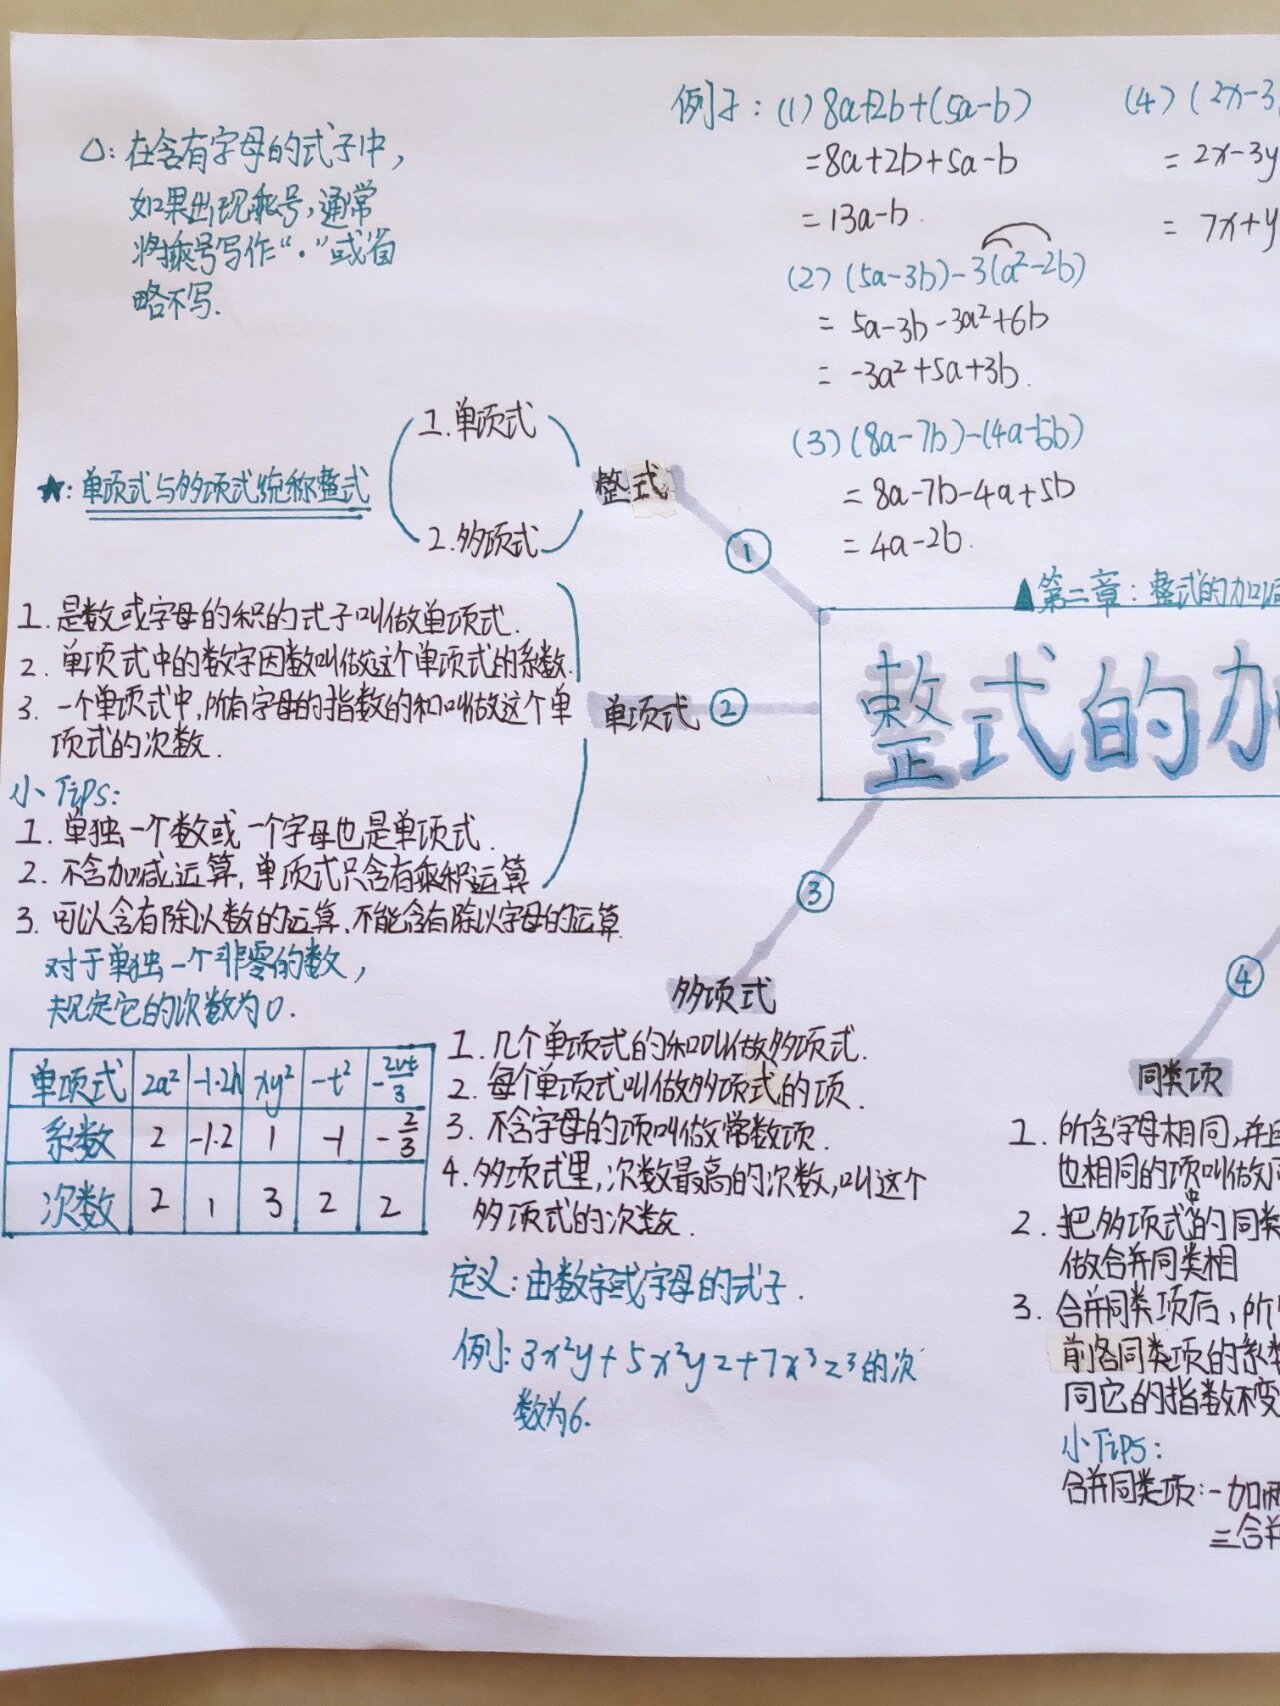 △：在含有字母的式子中，
如果出现乘号，通常
将乘号写作“·”或省
略不写.
例子：(1) 8a+2b+(5a-b)
=8a+2b+5a-b
=13a-b.
(2) (5a-3b)-3(a²-2b)
= 5a-3b-3a²+6b
= -3a²+5a+3b.
(3) (8a-7b)-(4a-5b)
= 8a-7b-4a+5b
= 4a-2b.
(4) (2x-3
= 2x-3y
= 7x+y
★：单项式与多项式统称整式
1.单项式
2.多项式
整式
①
▲第二章：整式的加减
整式的加
1. 是数或字母的积的式子叫做单项式.
2. 单项式中的数字因数叫做这个单项式的系数.
3. 一个单项式中，所有字母的指数的和叫做这个单
项式的次数.
单项式
②
小Tips:
1. 单独一个数或一个字母也是单项式.
2. 不含加减运算，单项式只含有乘积运算
3. 可以含有除以数的运算，不能含有除以字母的运算.
对于单独一个非零的数，
规定它的次数为0.
单项式 2a² -1.2h xy² -t² -2vt/3
系数 2 -1.2 1 -1 -2/3
次数 2 1 3 2 2
③
多项式
1. 几个单项式的和叫做多项式.
2. 每个单项式叫做多项式的项.
3. 不含字母的项叫做常数项.
4. 多项式里，次数最高的次数，叫这个
多项式的次数.
定义：由数字或字母的式子.
例：3x²y+5x²yz+7x³z³的次
数为6.
④
同类项
1. 所含字母相同，并且
也相同的项叫做同
2. 把多项式中的同类
做合并同类相
3. 合并同类项后，所
前各同类项的系数
同它的指数不变
小Tips:
合并同类项：一加两
三合并